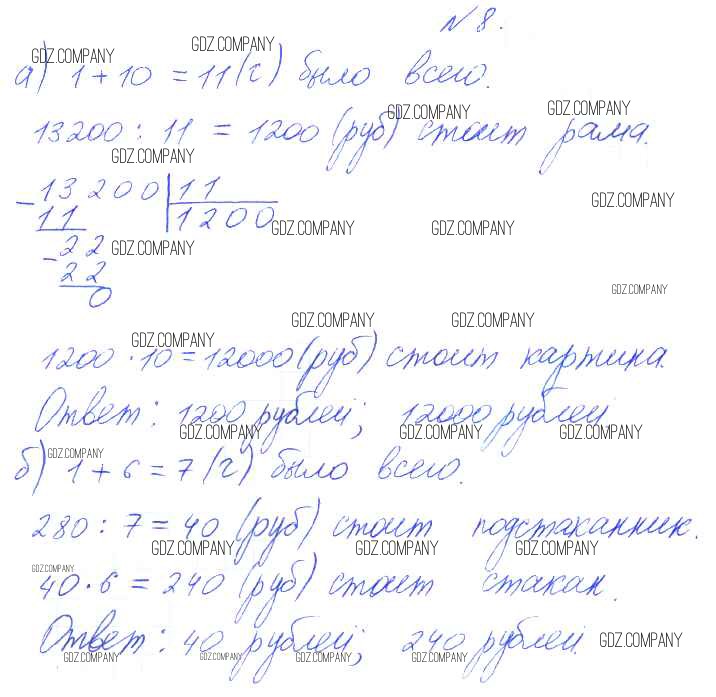 № 8.
GDZ.COMPANY GDZ.COMPANY
а) 1 + 10 = 11 (ч) было всего.
GDZ.COMPANY GDZ.COMPANY
13200 : 11 = 1200 (руб) стоит рама.
GDZ.COMPANY
- 13200 | 11
GDZ.COMPANY
11 | 1200
GDZ.COMPANY GDZ.COMPANY
- 22 GDZ.COMPANY
22
0
GDZ.COMPANY
GDZ.COMPANY GDZ.COMPANY
GDZ.COMPANY
1200 · 10 = 12000 (руб) стоит картина.
Ответ: 1200 рублей; 12000 рублей
GDZ.COMPANY GDZ.COMPANY GDZ.COMPANY
GDZ.COMPANY
б) 1 + 6 = 7 (ч) было всего.
280 : 7 = 40 (руб) стоит подстаканник.
GDZ.COMPANY GDZ.COMPANY GDZ.COMPANY
GDZ.COMPANY
40 · 6 = 240 (руб) стоит стакан.
Ответ: 40 рублей; 240 рублей.
GDZ.COMPANY
GDZ.COMPANY GDZ.COMPANY GDZ.COMPANY GDZ.COMPANY